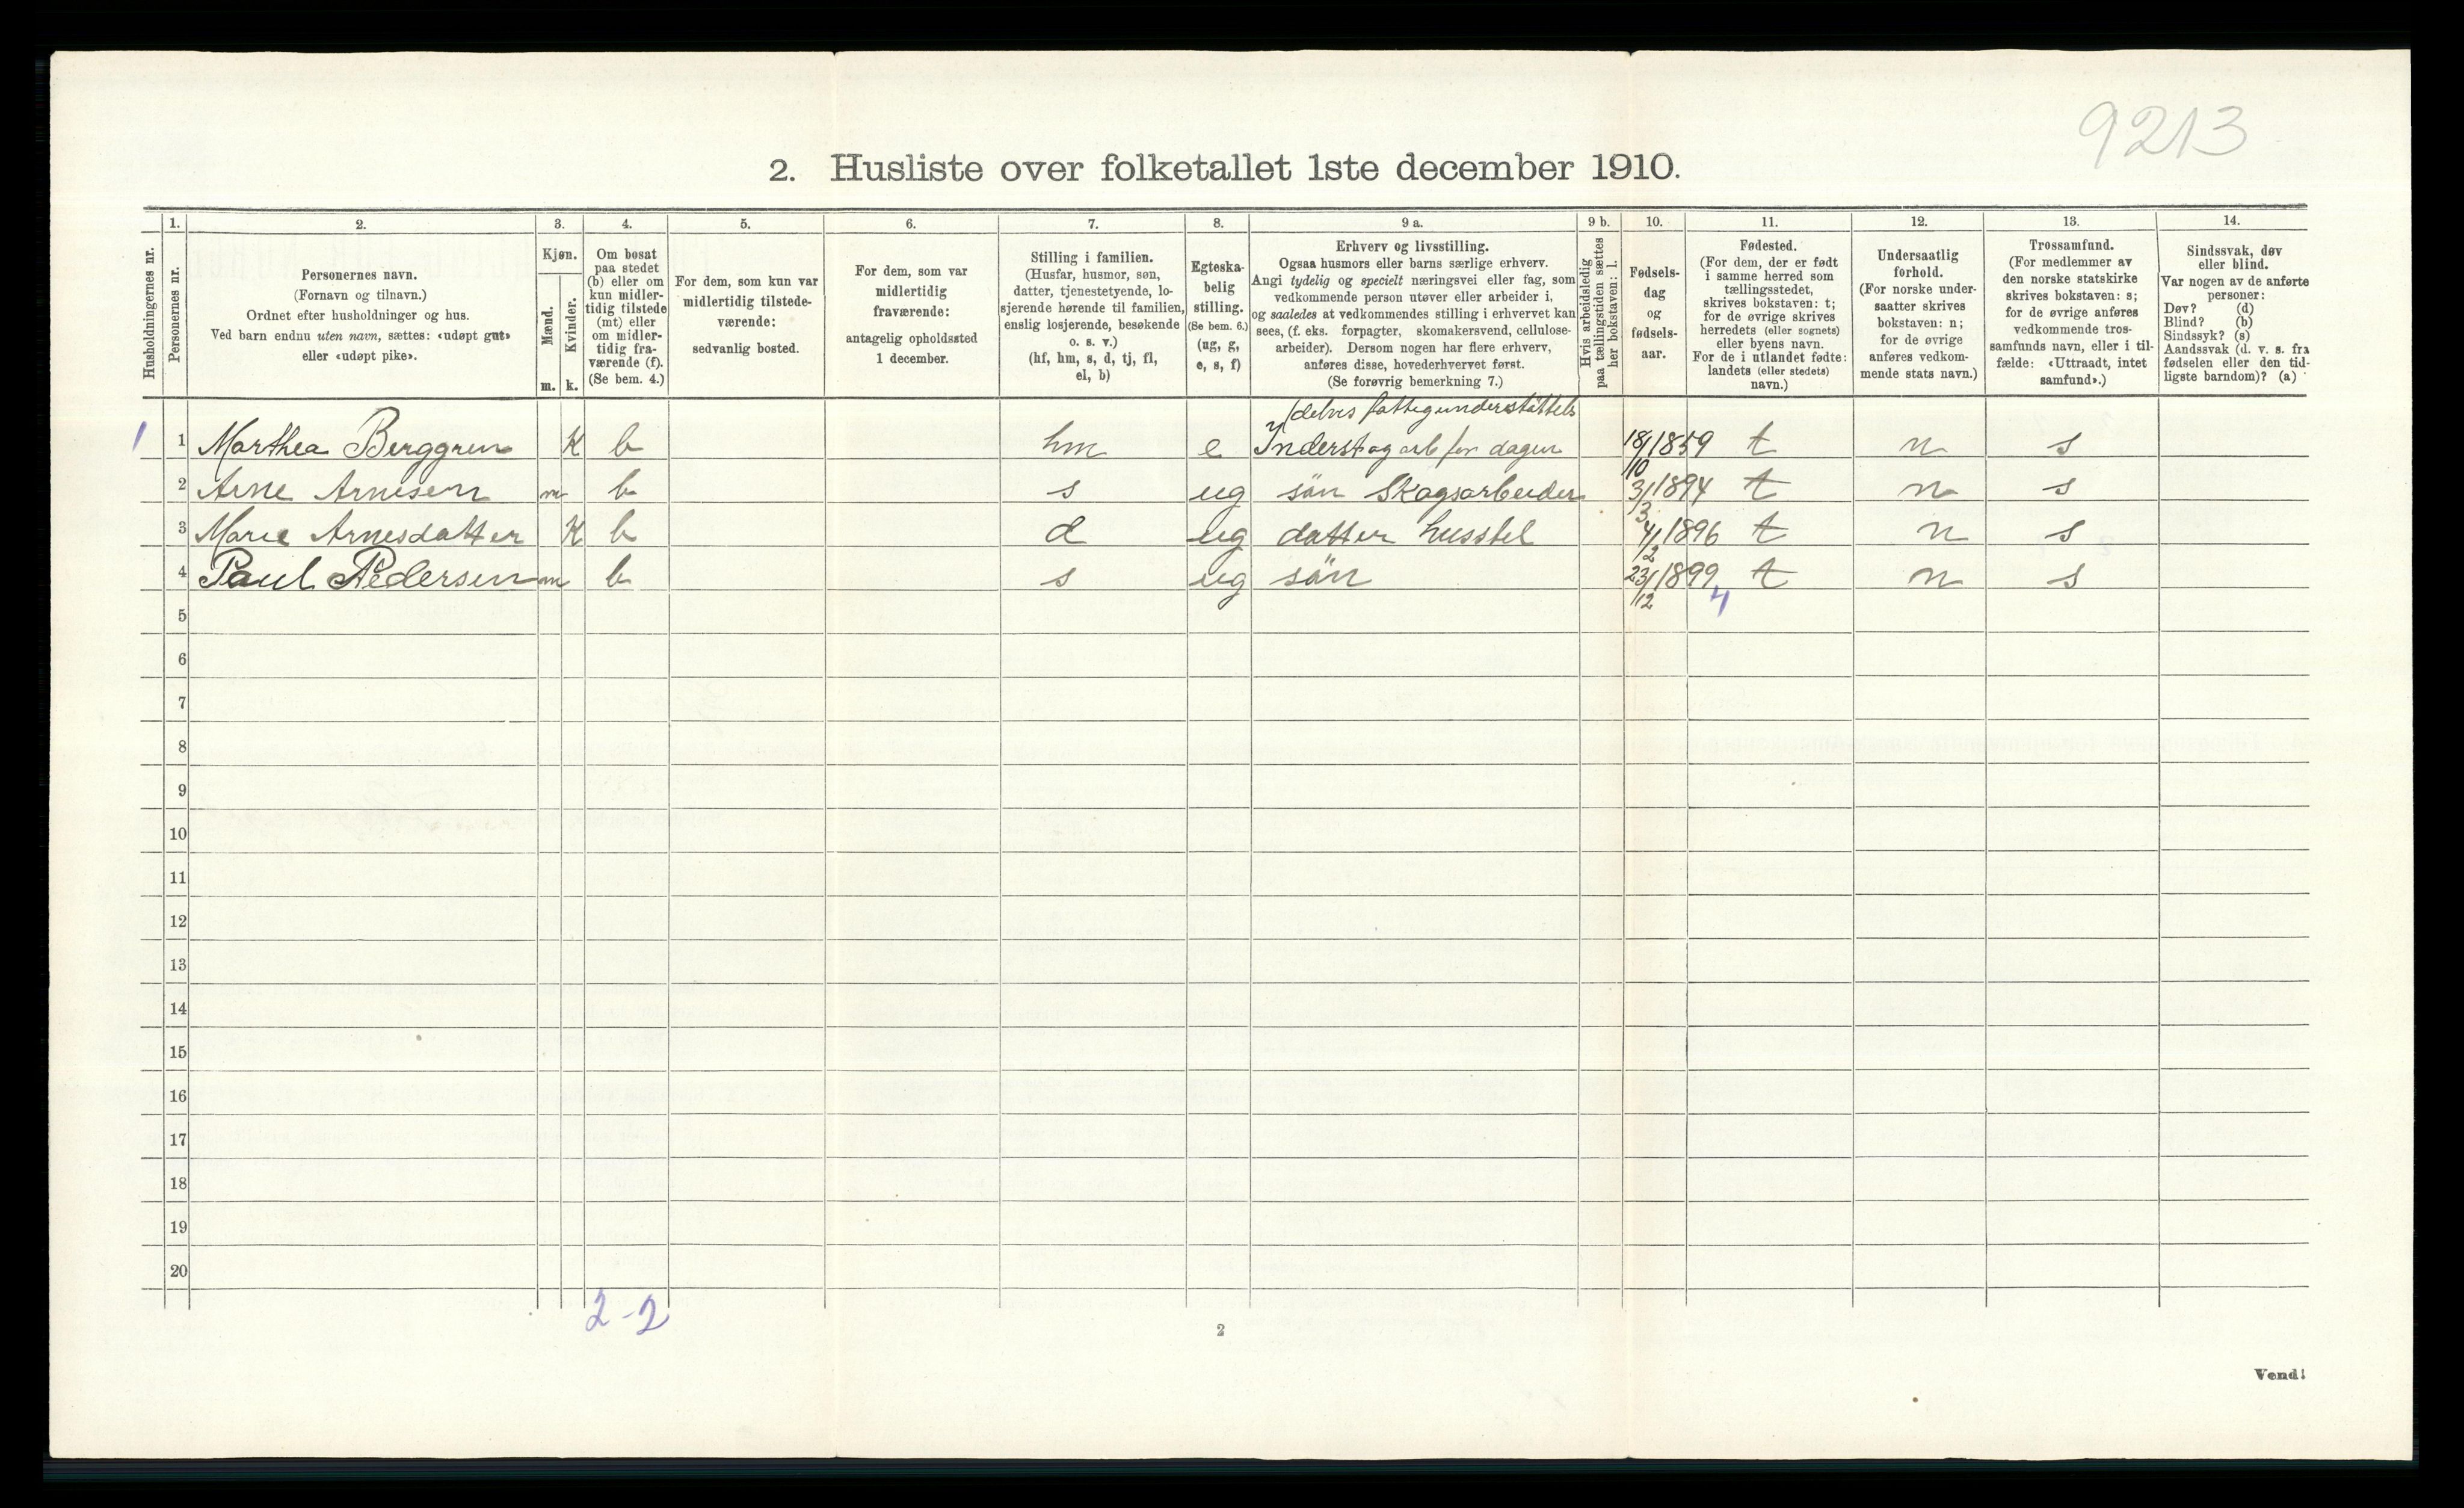 9213
2. Husliste over folketallet 1ste december 1910.
Husholdningernes nr.
1.
Personernes nr.
2.
Personernes navn.
(Fornavn og tilnavn.)
Ordnet efter husholdninger og hus.
Ved barn endnu uten navn, sættes: «udøpt gut»
eller «udøpt pike».
3.
Kjøn.
Mænd.
Kvinder.
m. k.
4.
Om bosat
paa stedet
(b) eller om
kun midler-
tidig tilstede
(mt) eller
om midler-
tidig fra-
værende (f).
(Se bem. 4.)
5.
For dem, som kun var
midlertidig tilstede-
værende:
sedvanlig bosted.
6.
For dem, som var
midlertidig
fraværende:
antagelig opholdssted
1 december.
7.
Stilling i familien.
(Husfar, husmor, søn,
datter, tjenestetyende, lo-
sjerende hørende til familien,
enslig losjerende, besøkende
o. s. v.)
(hf, hm, s, d, tj, fl,
el, b)
8.
Egteska-
belig
stilling.
(Se bem. 6.)
(ug, g,
e, s, f)
9 a.
Erhverv og livsstilling.
Ogsaa husmors eller barns særlige erhverv.
Angi tydelig og specielt næringsvei eller fag, som
vedkommende person utøver eller arbeider i,
og saaledes at vedkommendes stilling i erhvervet kan
sees, (f. eks. forpagter, skomakersvend, cellulose-
arbeider). Dersom nogen har flere erhverv,
anføres disse, hovederhvervet først.
(Se forøvrig bemerkning 7.)
9 b.
Hvis arbeidsledig
paa tællingstiden sættes
her bokstaven: l.
10.
Fødsels-
dag
og
fødsels-
aar.
11.
Fødested.
(For dem, der er født
i samme herred som
tællingsstedet,
skrives bokstaven: t;
for de øvrige skrives
herredets (eller sognets)
eller byens navn.
For de i utlandet fødte:
landets (eller stedets)
navn.)
12.
Undersaatlig
forhold.
(For norske under-
saatter skrives
bokstaven: n;
for de øvrige
anføres vedkom-
mende stats navn.)
13.
Trossamfund.
(For medlemmer av
den norske statskirke
skrives bokstaven: s;
for de øvrige anføres
vedkommende tros-
samfunds navn, eller i til-
fælde: «Uttraadt, intet
samfund».)
14.
Sindssvak, døv
eller blind.
Var nogen av de anførte
personer:
Døv? (d)
Blind? (b)
Sindssyk? (s)
Aandssvak (d. v. s. fra
fødselen eller den tid-
ligste barndom)? (a)
delvis fattigunderstøttels
1 1 Marthea Berggren K b hm e Inderst og arb for dagen 18/10 1859 t n s
2 Arne Arnesen m b s ug sön Skogsarbeider 3/3 1894 t n s
3 Marie Arnesdatter K b d ug datter husstel 4/2 1896 t n s
4 Paul Pedersen m b s ug sön 23/12 1899 t n s
4
5
6
7
8
9
10
11
12
13
14
15
16
17
18
19
20
2-2
2
Vend!